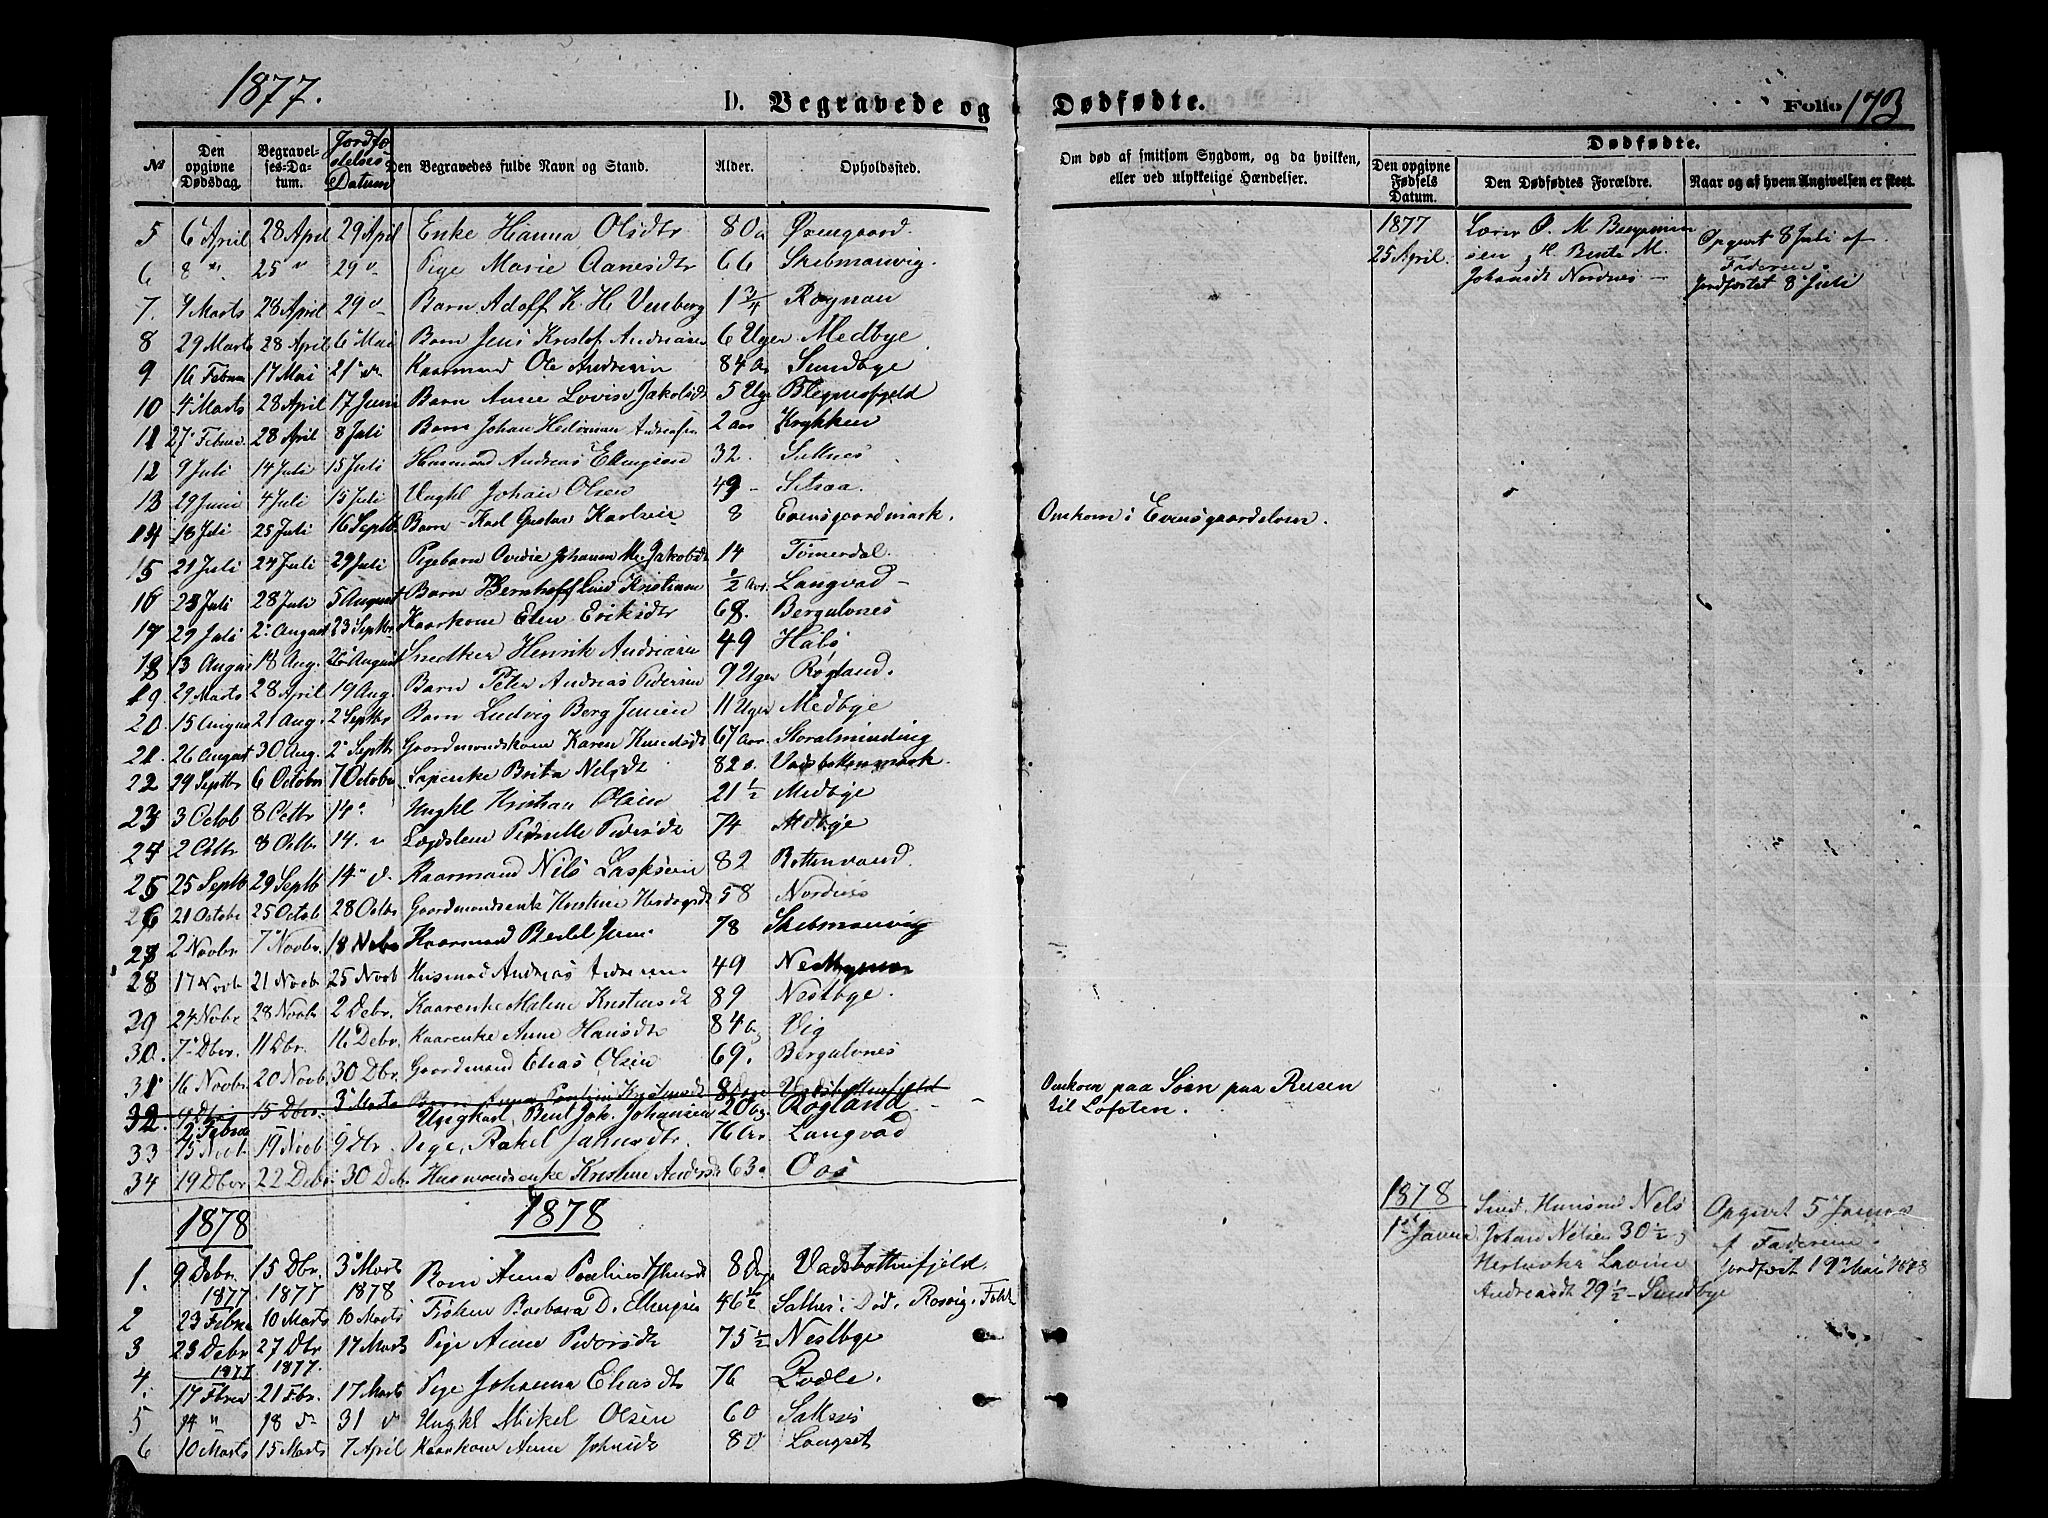 1877.
D. Begravede og
Dødfødte.
Folio 173
№ Den opgivne Dødsdag. Begravelses-Datum. Jordfæstelses Datum Den Begravedes fulde Navn og Stand. Alder. Opholdssted.
Om død af smitsom Sygdom, og da hvilken, eller ved ulykkelige Hændelser.
Dødfødte.
Den opgivne Fødsels Datum. Den Dødfødtes Forældre. Naar og af hvem Angivelsen er skeet.
5 6 April 28 April 29 April Enke Hanna Olsdtr 80 a Øxengaard
6 8 " 25 " 29 " Pige Marie Aanesdtr 66 Skibmanvig.
7. 9 Marts 28 April 29 " Barn Adolf K. H. Venberg 1 3/4 Rognan
8 29 Marts 28 April 6 Mai Barn Jens Kristof Andreasen 6 Uger Medbye
9 16 Februar 17 Mai 21 Kaarmand Ole Andreasen 84 Aa Sundbye
10 4 Marts 28 April 17 Juni Barn Anne Lovise Jakobsdt 5 Uger
11 27 Februar 28 April 8 Juli Barn Johan Hedeman Andreasen 2 aar Krykken
12 9 Juli 14 Juli 15 Juli Huusmand Andreas Ellingsen 32. Saltnes
13 29 Juni 4 Juli 15 Juli Ungkl Johan Olsen 49 - Setsaa.
14 18 Juli 25 Juli 16 Septb Barn Karl Gustav Karlsen 8 Evensgaardmark.
15 21 Juli 24 Juli 29 Juli Pigebarn Ovidie Johanna M. Jakobsdt 14 Tømerdal.
16 23 Juli 28 Juli 5 August Barn Bernhoff Lind Kristians 1/2 Aar Langvad -
17 29 Juli 2 August 23 Septbr Kaarkone Elen Eriksdtr 68. Bergulvnes
18 13 August 18 Aug. 26 August Snedker Henrik Andreasen 49 Hals
19 29 Marts 28 April 19 Aug. Barn Peter Andreas Pedersen 9 Uger Røgland.
20. 15 August 21 Aug. 2 Septbr Barn Ludvig Berg Jensen 11 Uger Medbye
21. 26 August 30 Aug. 2 Septbr Gaardmandskone Karen Knudsdt 67 Aar. Storalminding
22 29 Septbr 6 Octobr 7 October Enke Brita Nelsdt 82 a. Vadsbottenmark.
23 3 Octob 8 Octbr 14 " Ungkl Kristian Olsen 21 1/2 Medbye
24 2 Octbr 8 Octbr 14. " Lægdslem Pernille Pedersdt 74 Medbye
25 25 Septb 29 Septb 14 " Kaarmand Nils 82 Bottenvand.
26 21 Octobr 25 Octob 28 Octbr Gaardmandsenk Kristine 58 Nordnes
27 2 Novbr 7 Novbr. 18 Nvbr Kaarmand Bertel Jens. 78 Skibmanvig
28 17 Novb 21 Novb 25 Novb Husmad Andreas 49 Nestbynæs
29 24 Nobr 28 Novbr 2 Debr. Kaarenke Malene Kristensdt 89 Nestbye.
30. 7 Dbr. 11 Dbr. 16 Debr. Kaarenke Anne Hansdtr 84 Aa Vig
31 16 Novbr 20 Novb 30 Dbr. Gaardmand Elias Olsen 69. Bergulvnes
32. 9 Dbr 15 Dbr. 3 Marts Barn Anna Pauline 8 Dage Vadsbottenfjeld
2 Februar Ungkarl Bent Joh. Johansen 20 Aa Røgland - -
33 13 Novb. 19 Novb 9 Dbr. Pige Rakel Jansdtr. 76 Aar Langvad
34 19 Dbr 22 Debr. 30 Debr. Husmandsenke Kristine Andersdt 63 a Oos
1877
25 April.
Lærer O. M. Benjaminsen, H. Bente M. Johansdt Nordnes -
Opgivet 8 Juli af Faderen.
Jordfæstet 8 Juli
Omkom i Evensgaardelven.
Omkom paa Søen paa Reisen
til Lofoten.
1878 1878
1. 9 Debr. 1877 15 Dbr. 1877 3 Marts 1878 Barn Anna Pauline 8 Dage Vadsbottenfjeld.
2 23 Febr 10 Marts 10 Marts Barbara D. Ellingsd 46 1/2 Død.
3 23 Debr. 1877 27 Dbr 1877. 17 Marts Pige Anne Pedersdt 75 1/2 Nestbye
4. 17 Febr 21 Fbr. 17 Marts Pige Johanna Eliasdtr 76
5 14 " 18 " 31 " Ungkl Mickel Olsen 60 Saksnes
6 10 Marts 15 Marts 7 April Kaarkone Anne Johnsdt 80 Langset
1878
1 Januar
Huusmd Nels
Johan Nilsen 30 1/2,
Hustru Lavine
Andreasdt 29 1/2 - Sundbye
Opgivet 5 Januar
af Faderen.
Jordfæst 19 Mai 1878